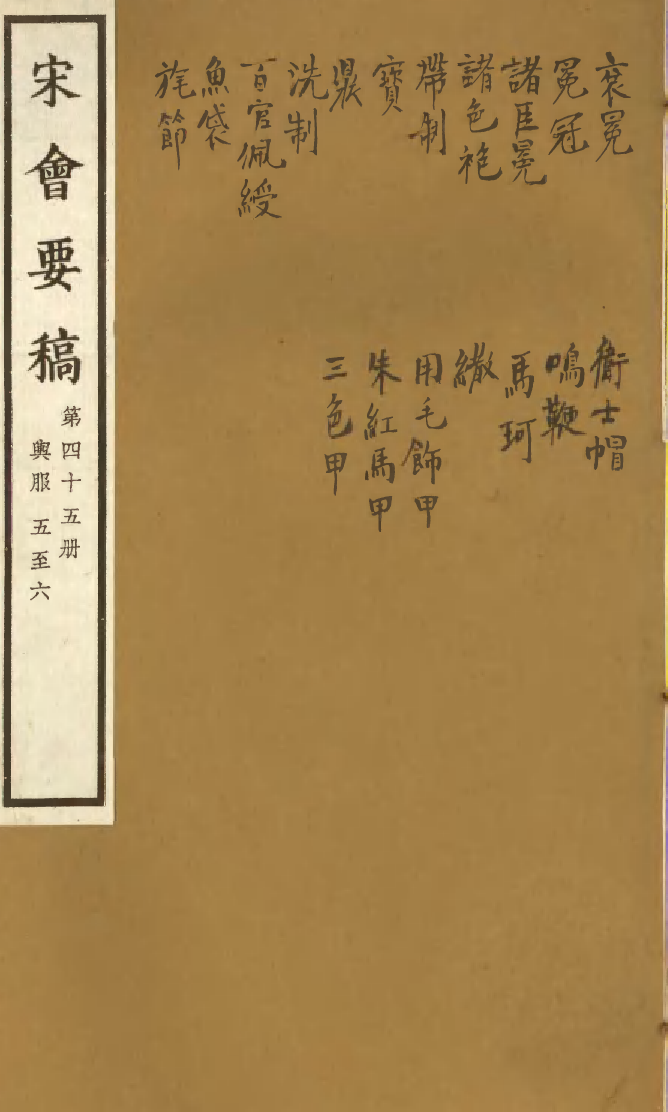 袞冕
冕冠
諸臣冕
諸色袍
帶制
寶
鼎
洗制
百官佩綬
魚袋
旄節
衛士帽
鳴鞭
馬珂
繖
用毛飾甲
朱紅馬甲
三色甲
宋會要稿
第四十五册
輿服 五至六